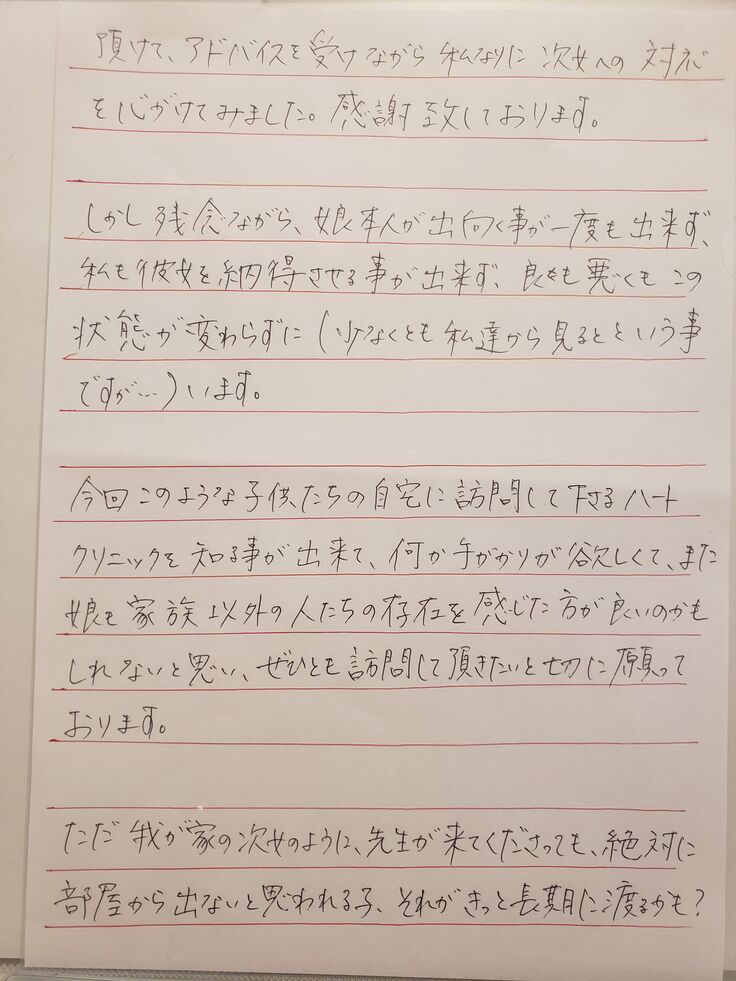 頂けて、アドバイスを受けながら私なりに次女への対応
を心がけてみました。感謝致しております。
しかし残念ながら、娘本人が出向く事が一度も出来ず、
私も彼女を納得させる事が出来ず、良くも悪くもこの
状態が変わらずに(少なくとも私達から見るとという事
ですが…)います。
今回このような子供たちの自宅に訪問して下さるハート
クリニックを知る事が出来て、何か手がかりが欲しくて、また
娘も家族以外の人たちの存在を感じた方が良いのかも
しれないと思い、ぜひとも訪問して頂きたいと切に願って
おります。
ただ我が家の次女のように、先生が来てくださっても、絶対に
部屋から出ないと思われる子、それがきっと長期に渡るかも?